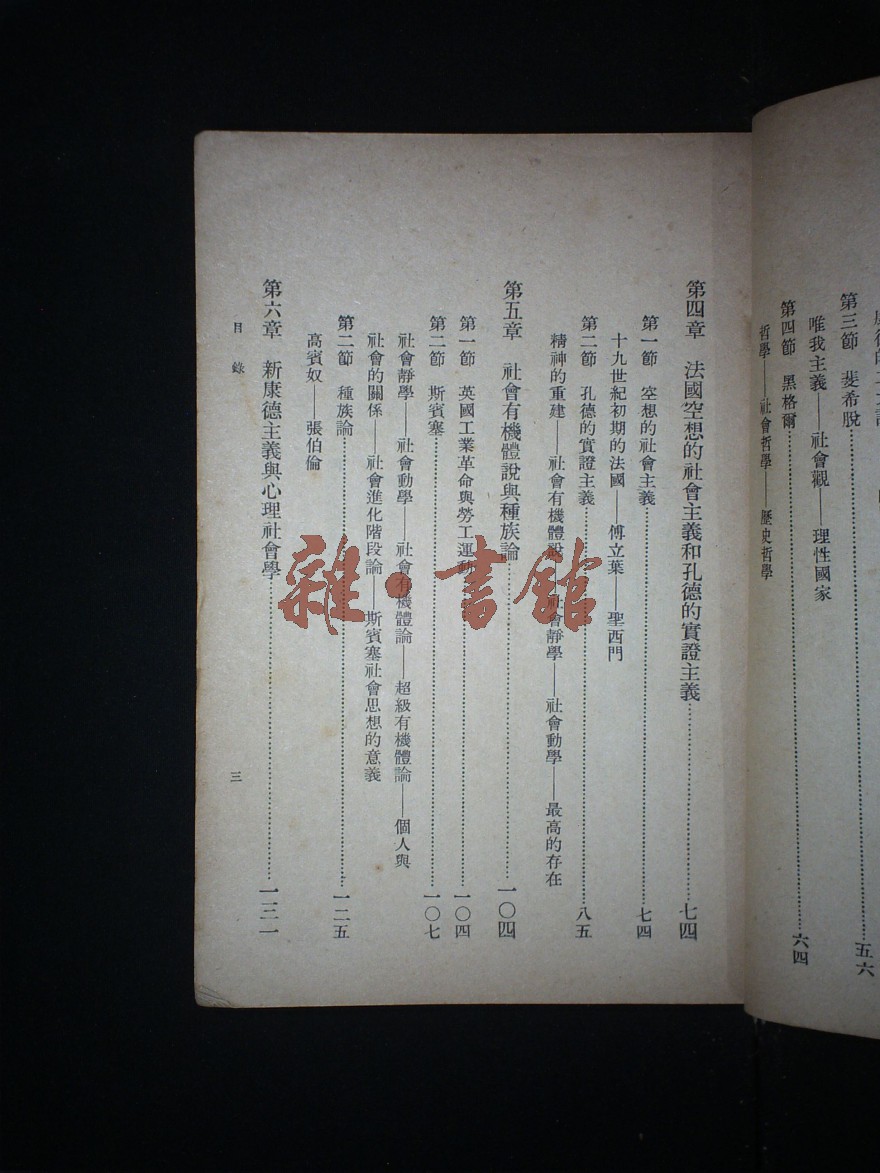 第三節　斐希脫……五六
唯我主義——社會觀——理性國家
第四節　黑格爾……六四
哲學——社會哲學——歷史哲學
第四章　法國空想的社會主義和孔德的實證主義……七四
第一節　空想的社會主義……七四
十九世紀初期的法國——傅立葉——聖西門
第二節　孔德的實證主義……八五
精神的重建——社會有機體說——社會靜學——社會動學——最高的存在
第五章　社會有機體說與種族論……一〇四
第一節　英國工業革命與勞工運動……一〇四
第二節　斯賓塞……一〇七
社會靜學——社會動學——社會有機體論——超級有機體論——個人與
社會的關係——社會進化階段論——斯賓塞社會思想的意義
第二節　種族論……一二五
高賓奴——張伯倫
第六章　新康德主義與心理社會學……一三一
目錄
三
雜·書館